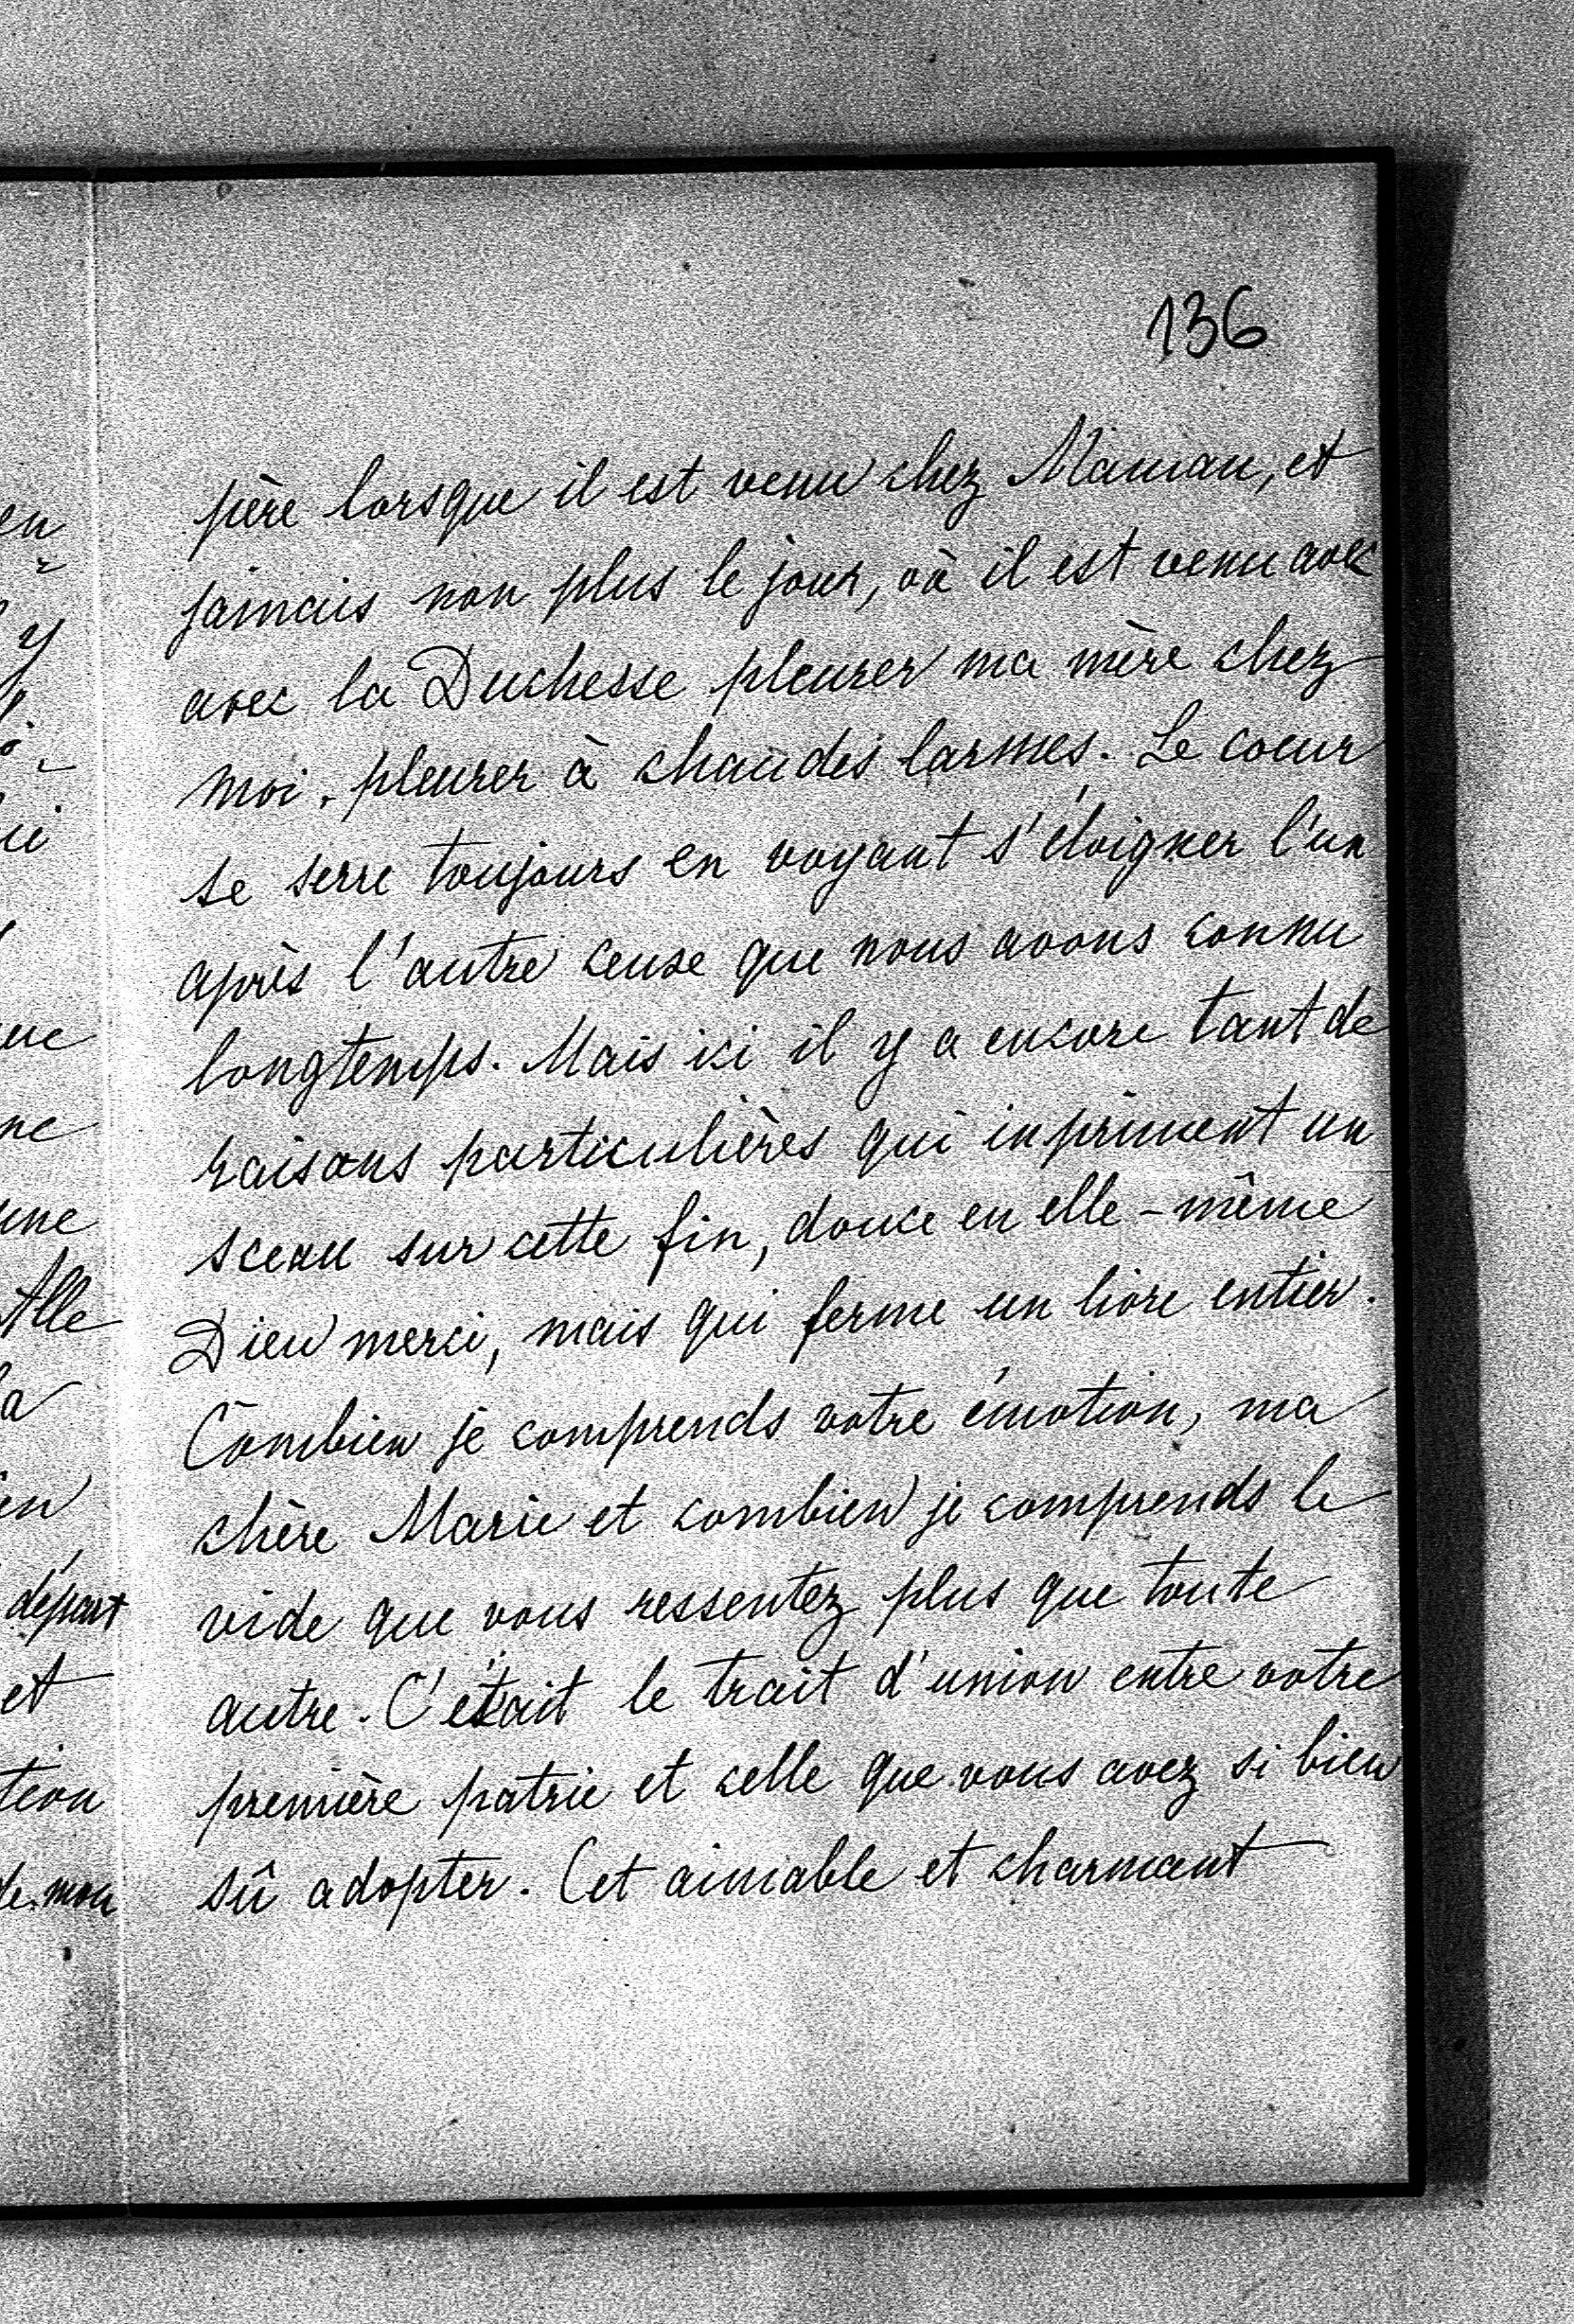 136
père lorsque il est venu chez Maman, et
jamais non plus le jour, où il est venu avec
avec la Duchesse pleurer ma mère chez
moi, pleurer à chaudes larmes. Le coeur
se serre toujours en voyant s'éloigner l'un
après l'autre ceuxe que nous avons connu
longtemps. Mais ici il y a encore tant de
raisons particulières qui inpriment un
sceau sur cette fin, douce en elle-même
Dieu merci, mais qui ferme un livre entier.
Combien je comprends votre émotion, ma
chère Marie et combien je comprends le
vide que vous ressentez plus que toute
autre. C'était le trait d'union entre votre
première patrie et celle que vous avez si bien
sû adopter. Cet aimable et charmant
en
y
ui
ne
une
la
départ
et
de mon